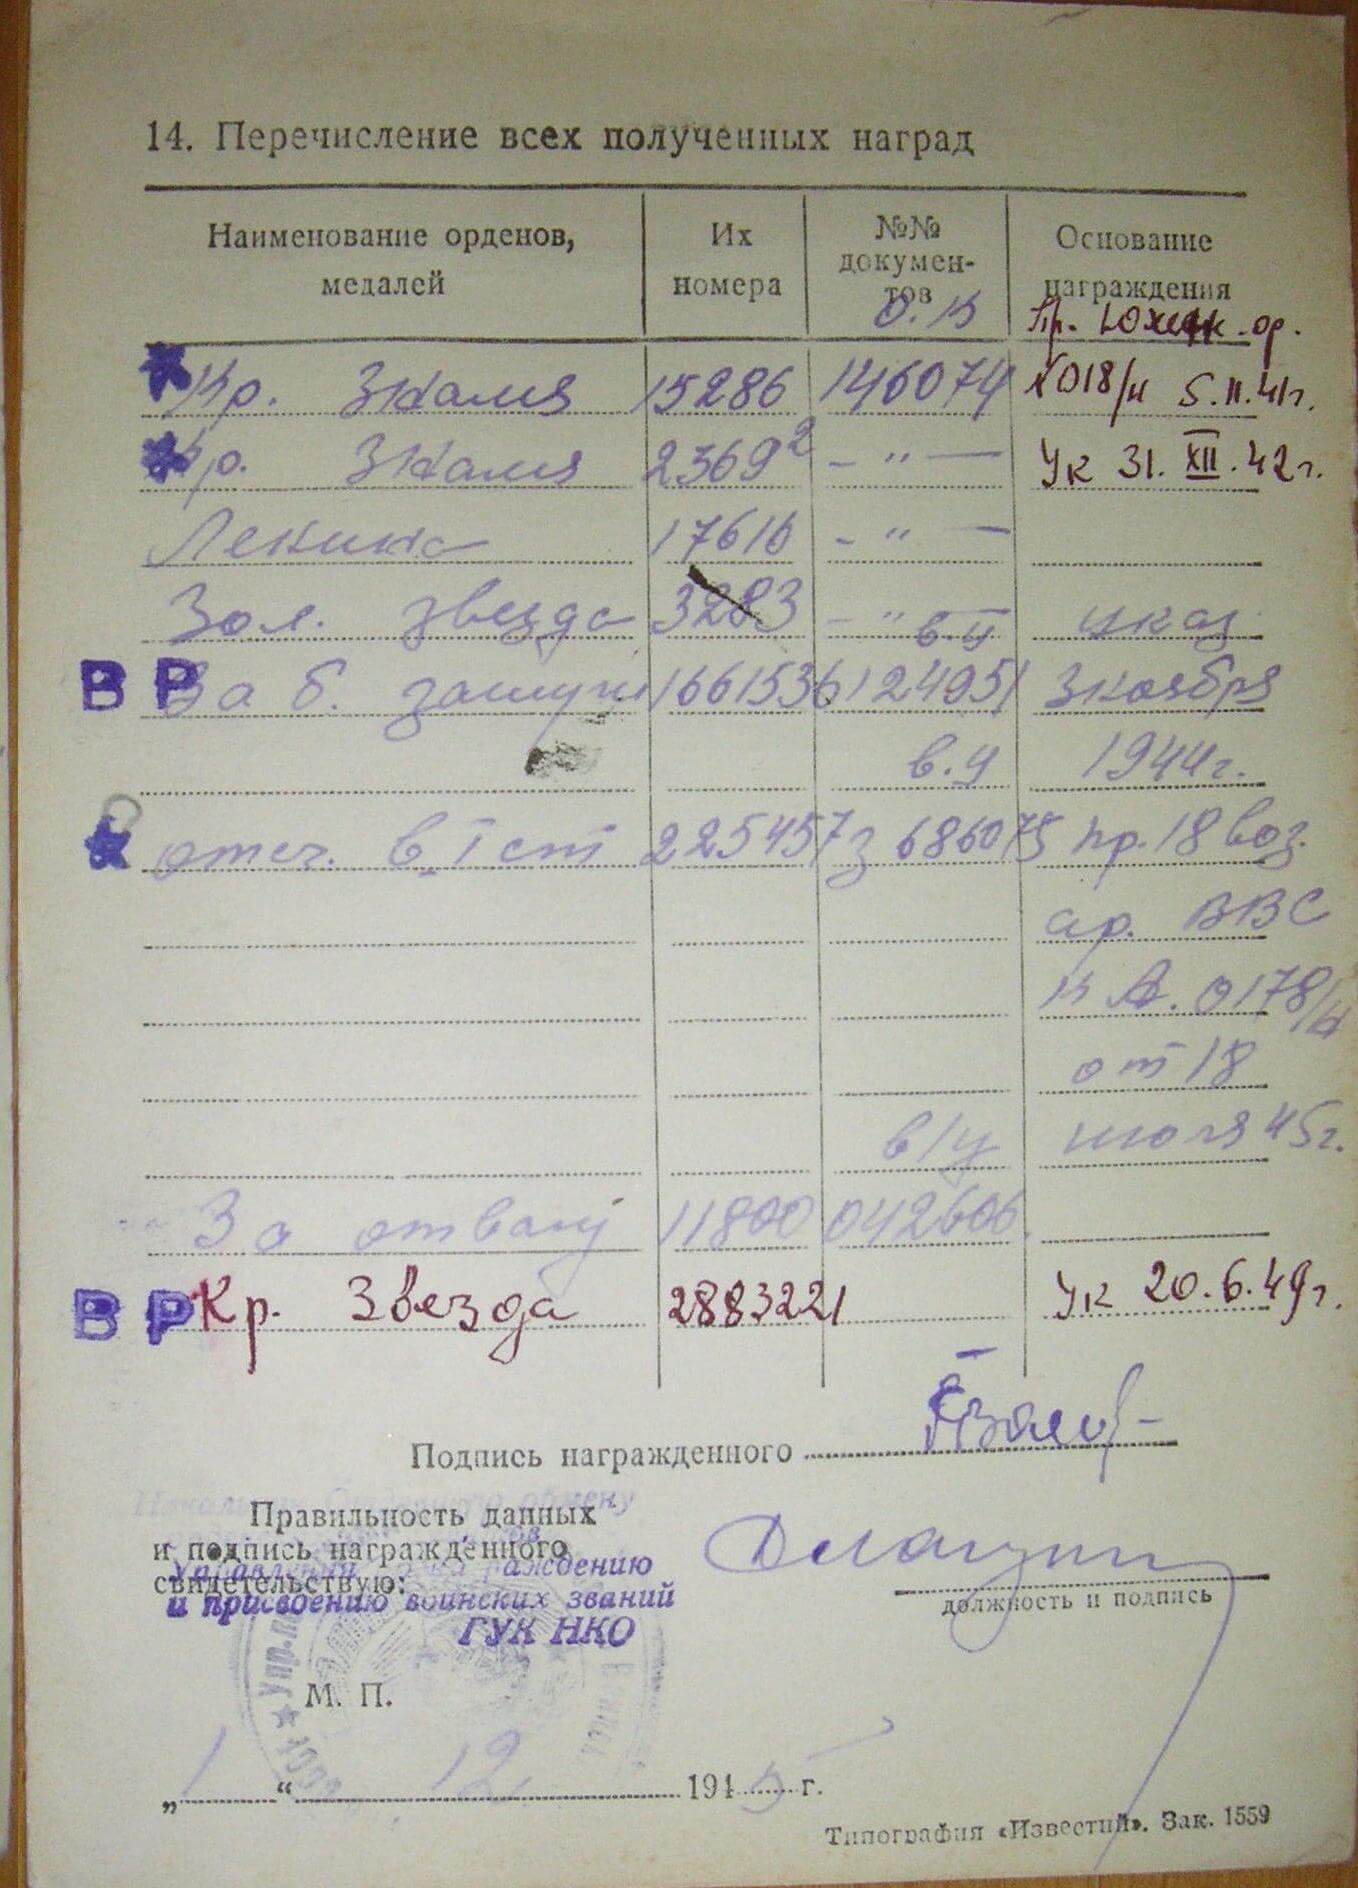 14. Перечисление всех полученных наград
Наименование орденов, медалей
Их номера
№№ документов
Основание награждения
О. К
Пр. Южн. ор.
Кр. Знамя 15286 146074 №018/н 5.11.41г.
Кр. Знамя 2369² – " – Ук 31. XII. 42г.
Ленина – " –
Зол. звезда 3283 – " – указ
в.у
В Р За б. заслуги 1661536 124951 3 ноября
в.у 1944г.
отеч. в I ст 225457 з 686075 пр. 18 воз.
ар. ВВС
К А. 0178/н
от 18
в/у июля 45г.
За отвагу 11800 042606
В Р Кр. Звезда 2883221 Ук 20.6.49г.
Подпись награжденного
Правильность данных
и подпись награжденного
свидетельствую:
и присвоению воинских званий
ГУК НКО
должность и подпись
М. П.
„ 1 “ 12. 1945 г.
Типография «Известий». Зак. 1559